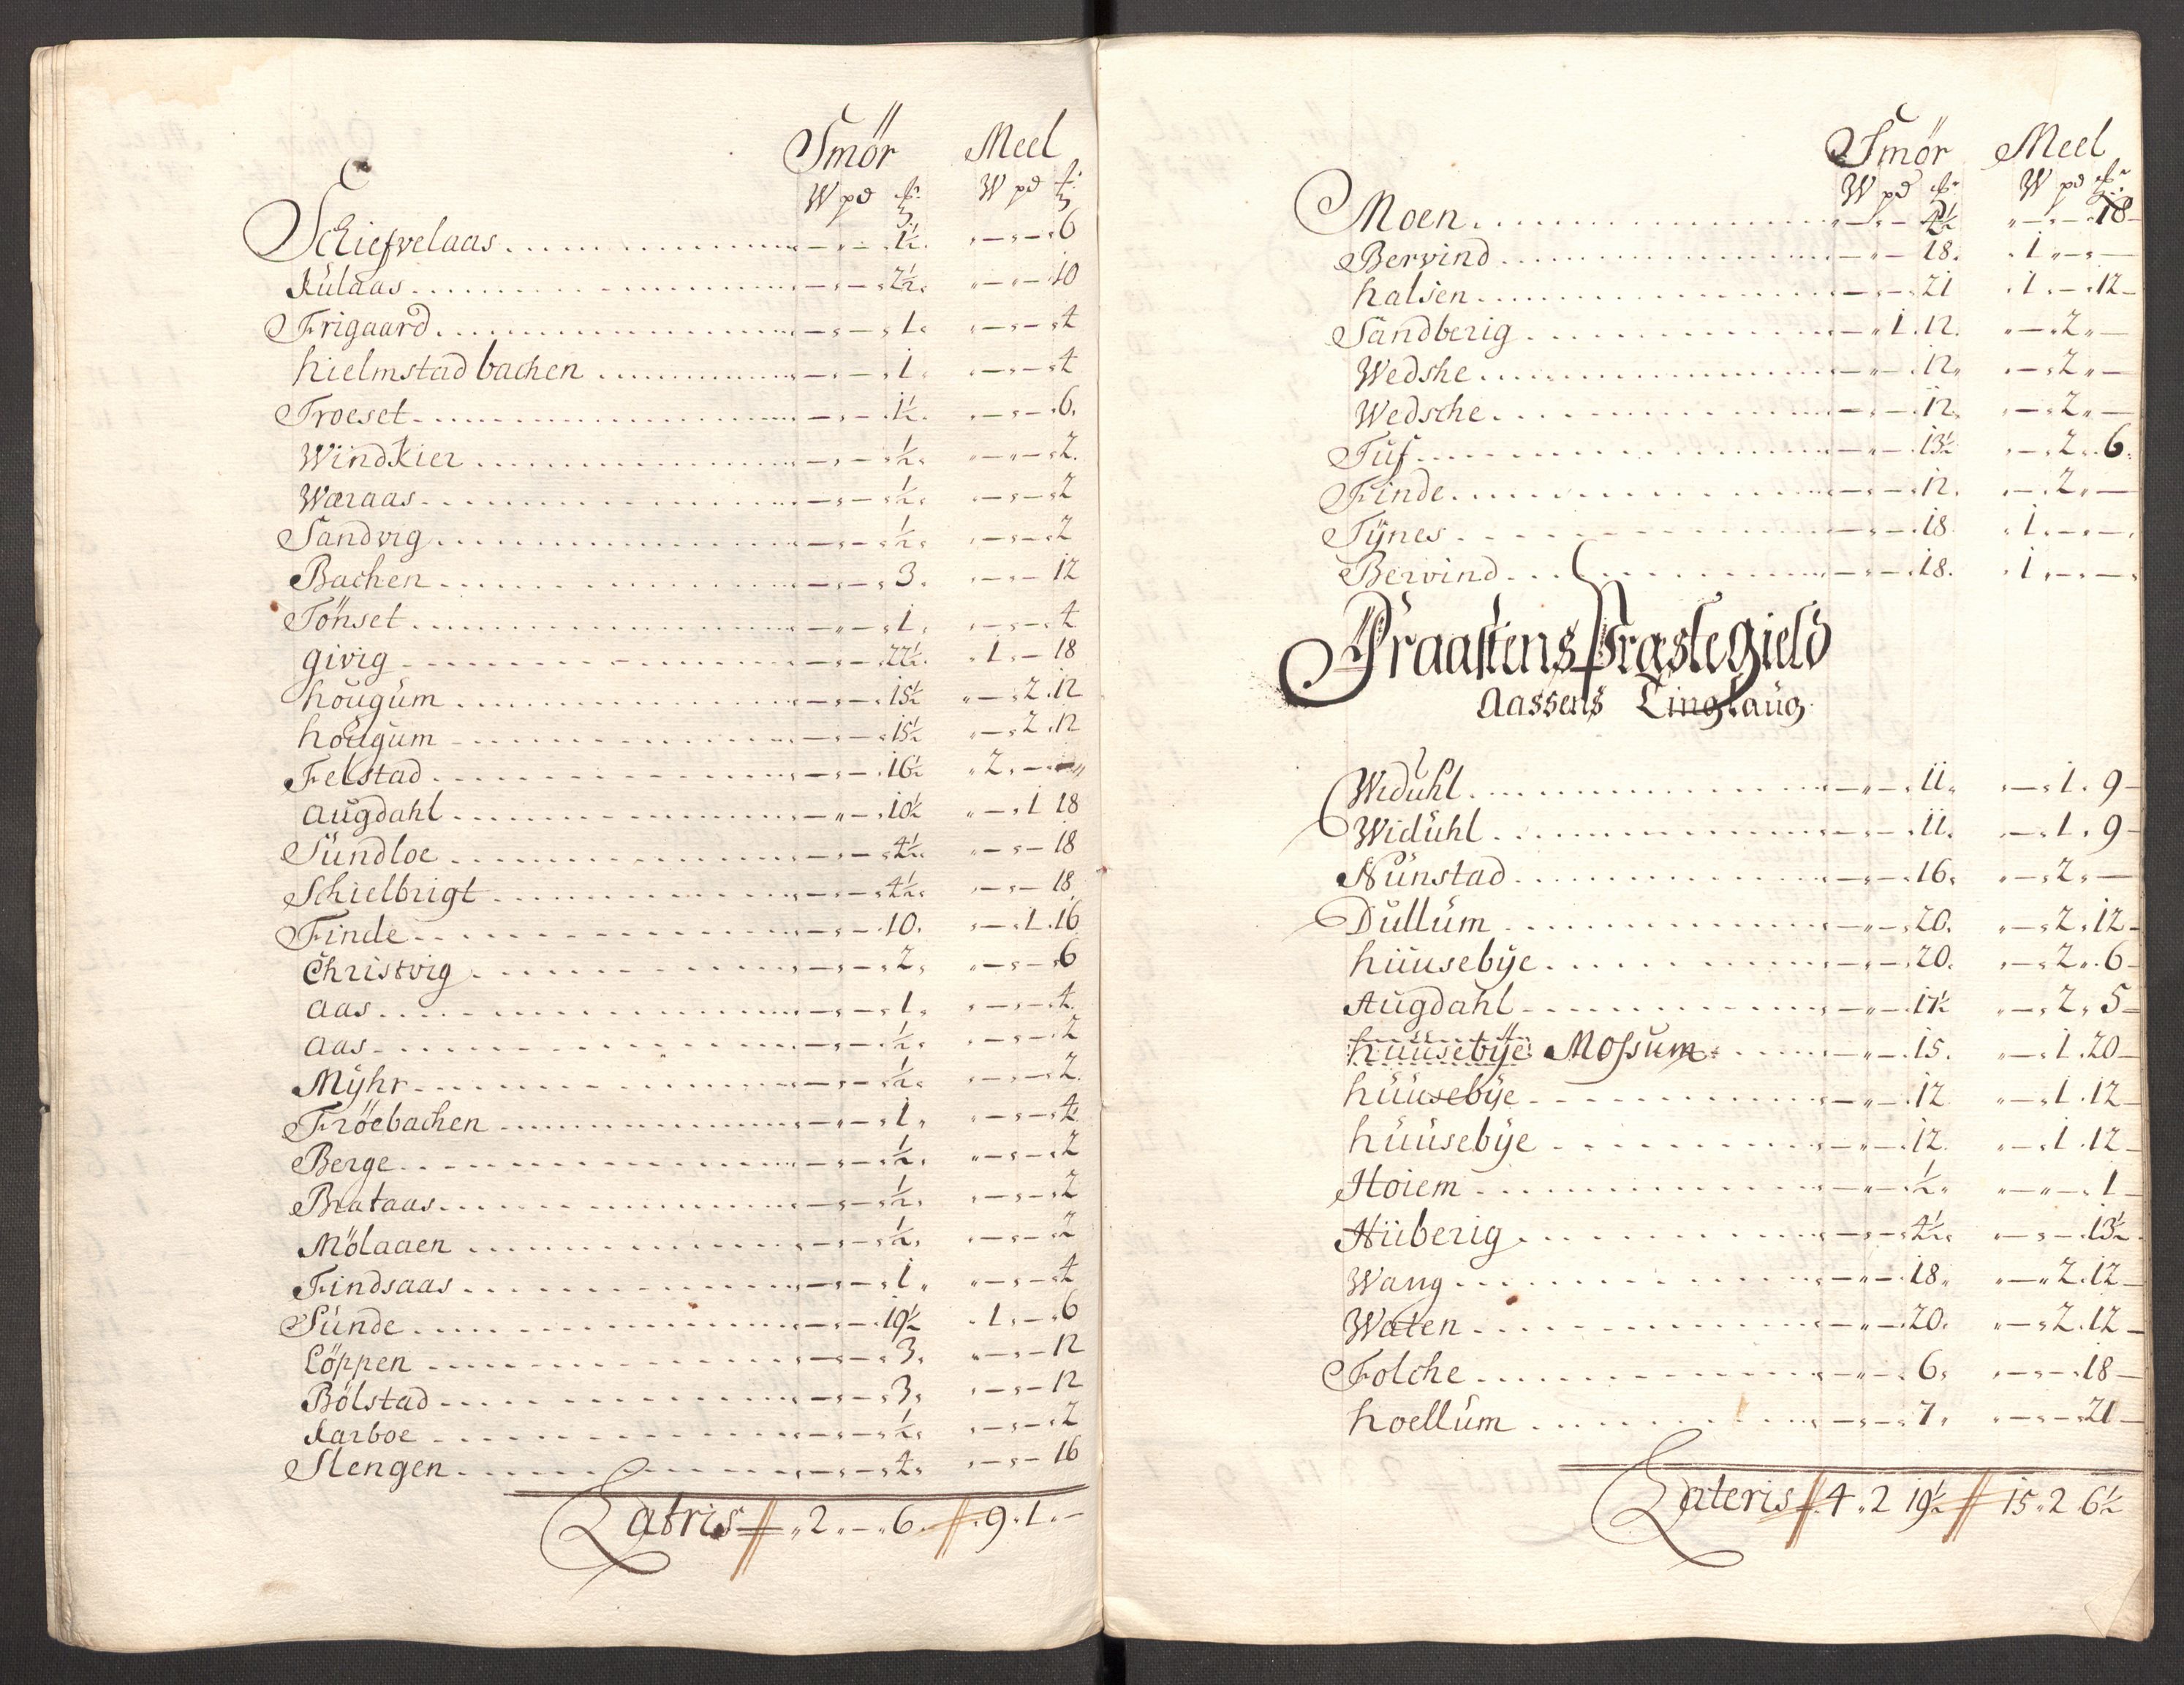 Smör Meel
W pd W pd
Schiefvelaas - - 1½ - - 6
Kulaas - - 2½ - - 10
Frigaard - - 1 - - 4
hielmstad bachen - - 1 - - 4
Troeset - - 1½ - - 6
Windkier - - ½ - - 2
Wæraas - - ½ - - 2
Sandvig - - ½ - - 2
Bachen - - 3 - - 12
Tönset - - 1 - - 4
givig - - 22½ 1 - 18
hougum - - 15½ - 2 12
hougum - - 15½ - 2 12
Felstad - - 16½ 2 - -
augdahl - - 10½ - 1 18
Sundloe - - 4½ - - 18
Schielbrigt - - 4½ - - 18
Finde - - 10 - 1 16
Christvig - - 2 - - 6
aas - - 1 - - 4
aas - - ½ - - 2
Mÿhr - - ½ - - 2
Fröebachen - - 1 - - 4
Berge - - ½ - - 2
Brataas - - ½ - - 2
Mölaaen - - ½ - - 2
Findsaas - - 1 - - 4
Sunde - - 19½ 1 - 6
Löppen - - 3 - - 12
Bölstad - - 3 - - 12
Karboe - - ½ - - 2
Slengen - - 4 - - 16
Latris 2 - 6 9 1 -
Smör Meel
W pd W pd
Moen - - 4½ - - 18
Bervind - - 18 1 - -
halsen - - 21 1 - 12
Sandberig - 1 12 - 2 -
Wedshe - - 12 - 2 -
Wedsche - - 12 - 2 -
Tuf - - 13½ - 2 6
Finde - - 12 - 2 -
Tÿnes - - 18 1 - -
Bervind - - 18 1 - -
Præstegield
Aassens Tinglaug
Widuhl - - 11 - 1 9
Widuhl - - 11 - 1 9
Nunstad - - 16 - 2 -
Dullum - - 20 - 2 12
huusebÿe - - 20 - 2 6
Augdahl - - 17½ - 2 5
huusebÿe Mossum - - 15 - 1 20
huusebÿe - - 12 - 1 12
huusebÿe - - 12 - 1 12
Hoiem - - ½ - - 1
Huberig - - 4½ - - 13½
Wang - - 18 - 2 12
Waten - - 20 - 2 12
Folche - - 6 - - 18
hoellum - - 7 - - 21
Lateris 4 2 19½ 15 2 6½